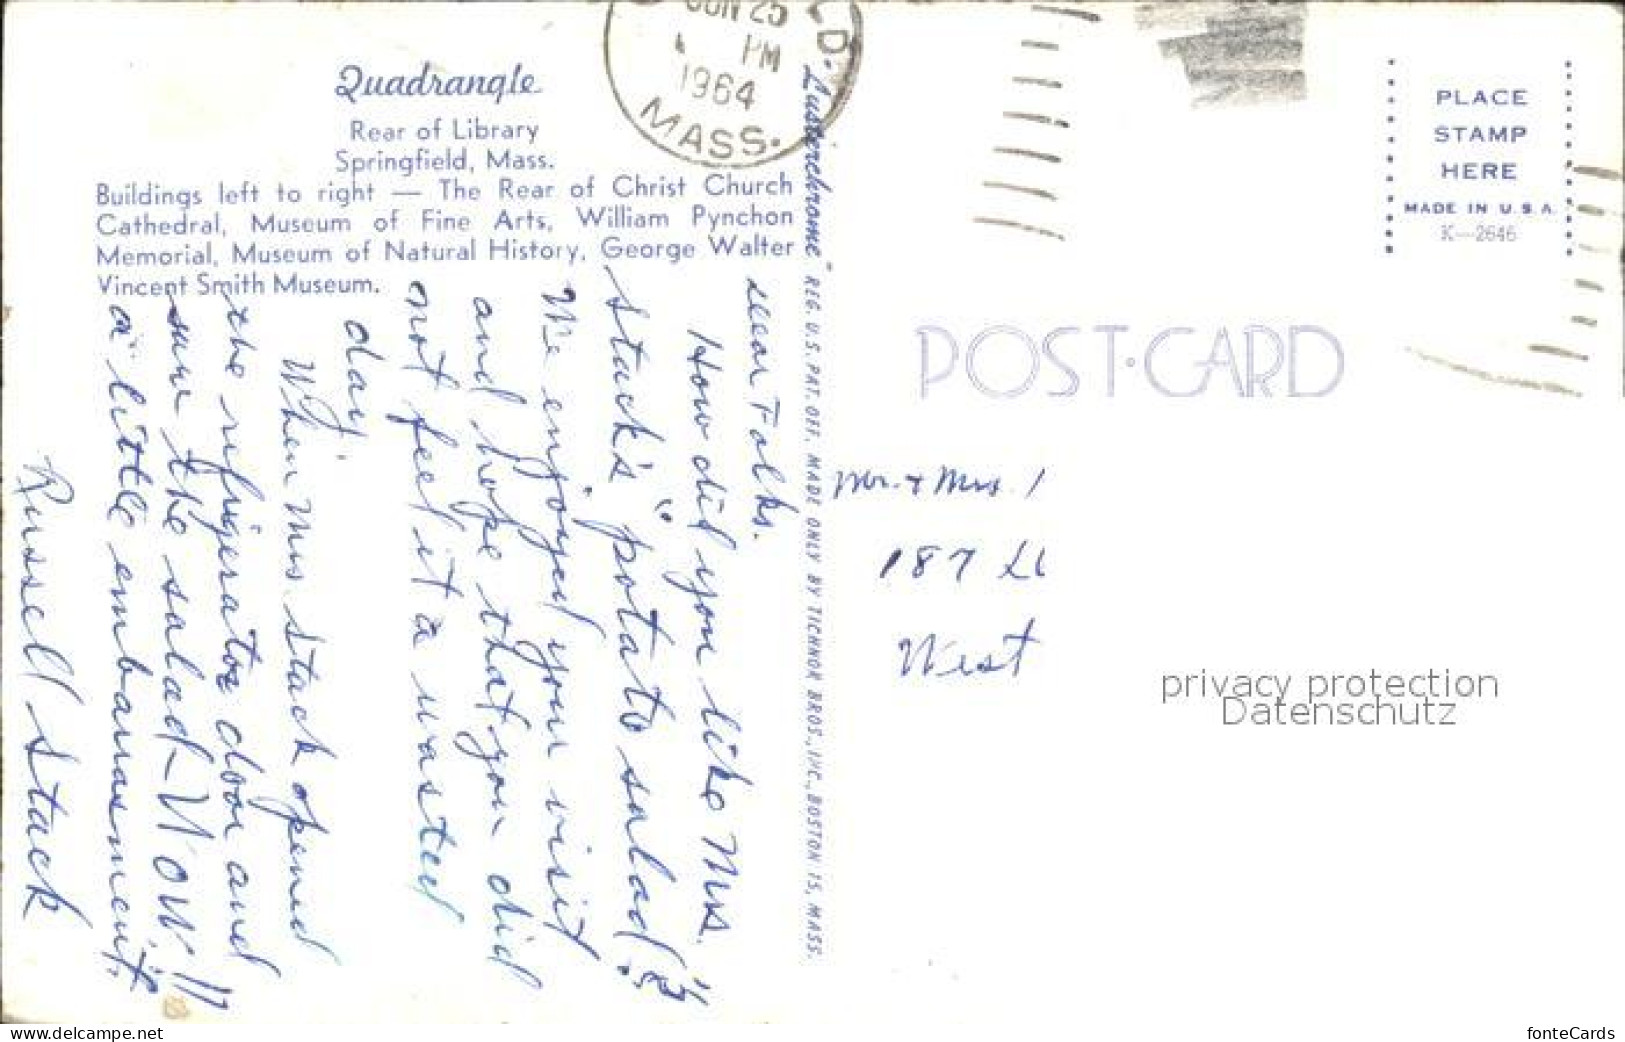 Quadrangle
Rear of Library
Springfield, Mass.
Buildings left to right — The Rear of Christ Church
Cathedral, Museum of Fine Arts, William Pynchon
Memorial, Museum of Natural History, George Walter
Vincent Smith Museum.
JUN 25
PM
1964
MASS.
D.
Dear Folks.
How did you like Mrs.
Stack's "potato salad"?
We enjoyed your visit
and hope that you did
not feel it a wasted
day.
When Mrs. Stack opened
the refrigerator door and
saw the salad - WOW!!
a little embarrassment.
Russell Stack
"Lusterchrome" REG. U.S. PAT. OFF. MADE ONLY BY TICHNOR BROS., INC., BOSTON 15, MASS.
PLACE
STAMP
HERE
MADE IN U.S.A.
K—2646
POST·CARD
Mr. & Mrs.
187
West
privacy protection
Datenschutz
www.delcampe.net
fonteCards